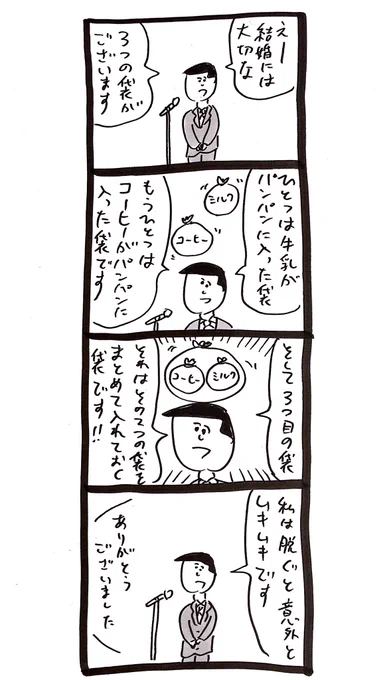 えー
結婚には
大切な
3つの袋が
ございます
ひとつは牛乳が
パンパンに入った袋
ミルク
コーヒー
もうひとつは
コーヒーがパンパンに
入った袋です
そして3つ目の袋
コーヒー
ミルク
それはその2つの袋を
まとめて入れておく
袋です!!
私は脱ぐと意外と
ムキムキです
ありがとう
ございました